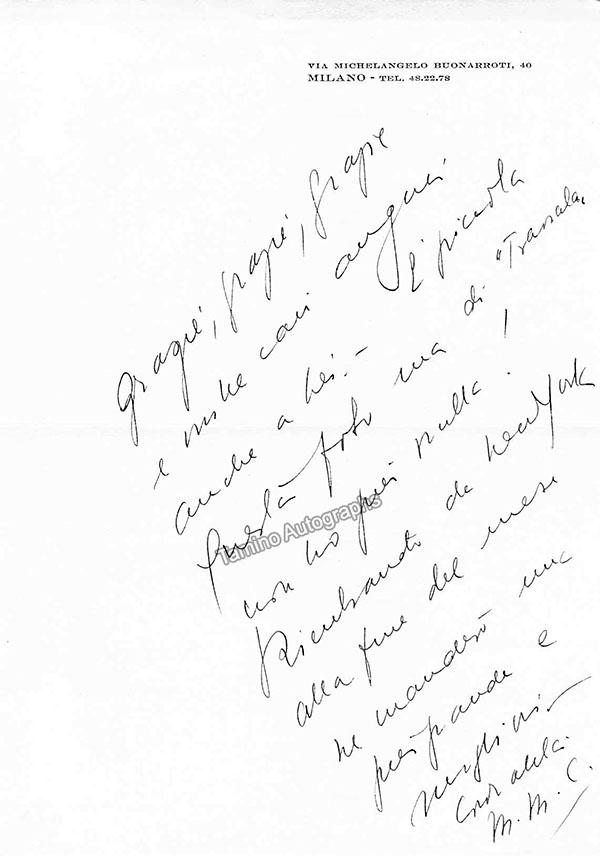 VIA MICHELANGELO BUONARROTI, 40
MILANO - TEL. 48.22.78
Grazie, grazie, grazie
e cari auguri
anche a Lei. - È piccola
questa foto ma di "Traviata„
non ho più nulla!
Rientrando da New York
alla fine del mese
ne manderò una
più grande e
Cordialità.
M. M. C.
Tamino Autographs